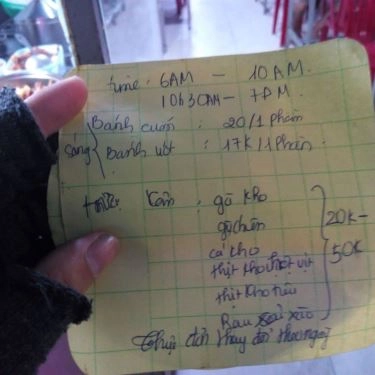 time: 6AM - 10AM.
10h30AM - 7PM
Sáng
Bánh cuốn : 20/1 phần
Bánh ướt : 17K/1 phần.
Cơm : gà kho
gà chiên
cá kho
thịt kho hột vịt
thịt kho tiêu
Rau xào
20K-
50K
Thực đơn thay đổi theo ngày